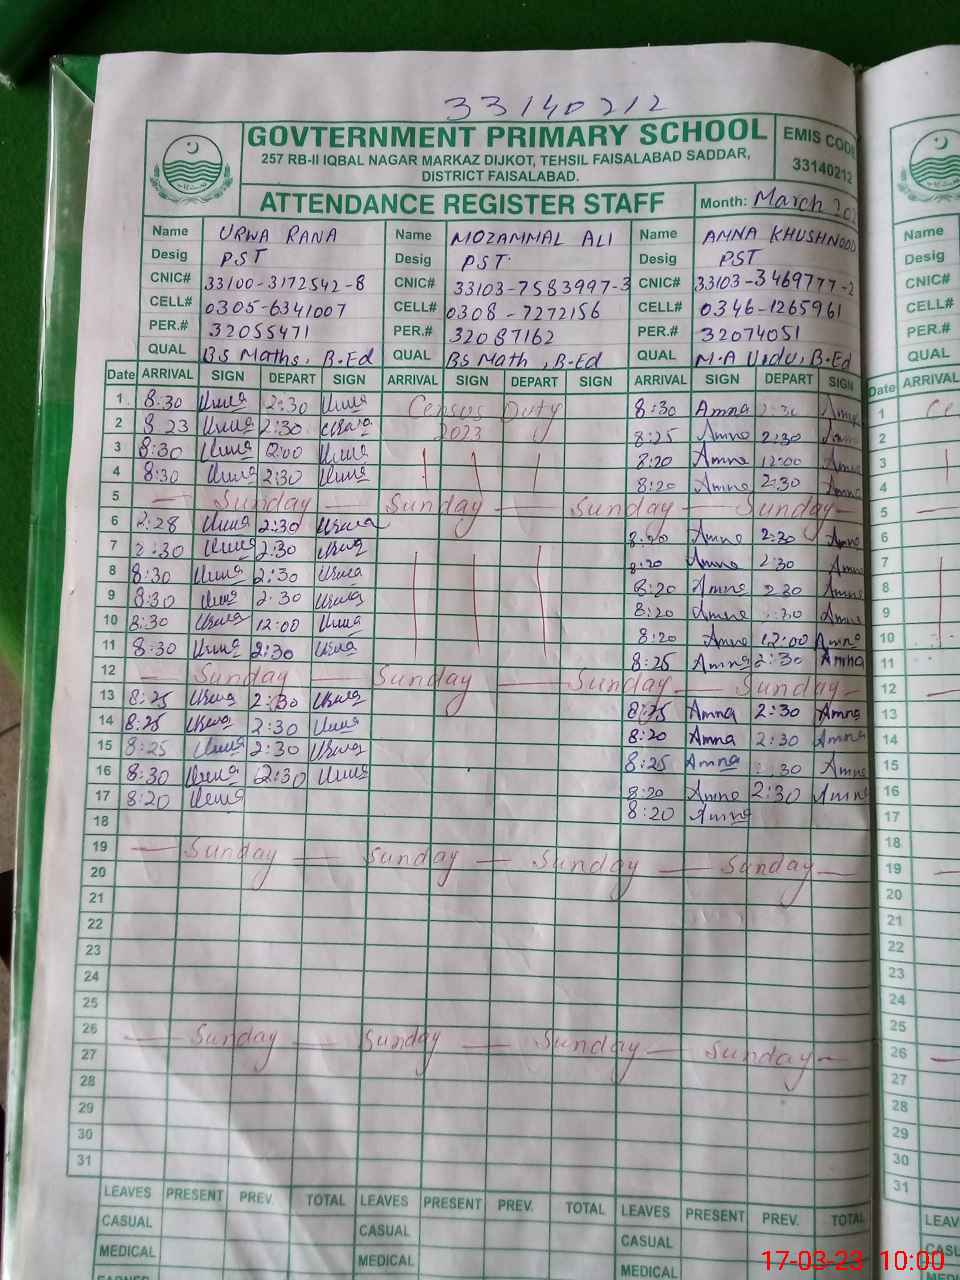 33140212
GOVTERNMENT PRIMARY SCHOOL
257 RB-II IQBAL NAGAR MARKAZ DIJKOT, TEHSIL FAISALABAD SADDAR,
DISTRICT FAISALABAD.
EMIS CODE
33140212
ATTENDANCE REGISTER STAFF Month: March
Name URWA RANA Name MOZAMMAL ALI Name AMNA KHUSHNOOD Name
Desig PST Desig PST Desig PST Desig
CNIC# 33100-3172542-8 CNIC# 33103-7583997-3 CNIC# 33103-3469777-2 CNIC#
CELL# 0305-6341007 CELL# 0308-7272156 CELL# 0346-1265961 CELL#
PER.# 32055471 PER.# 32087162 PER.# 32074051 PER.#
QUAL BS Maths, B.Ed QUAL BS Math, B.Ed QUAL M.A Urdu, B.Ed QUAL
Date ARRIVAL SIGN DEPART SIGN ARRIVAL SIGN DEPART SIGN ARRIVAL SIGN DEPART SIGN Date ARRIVAL
1 8:30 Urwa 2:30 Urwa Census Duty 8:30 Amna 2:30 Amna 1
2 8 23 Urwa 2:30 Urwa 2023 8:25 Amna 2:30 Amna 2
3 8:30 Urwa Urwa 8:20 Amna 12:00 Amna 3
4 8:30 Urwa 2:30 Urwa 8:20 Amna 2:30 Amna 4
5 Sunday Sunday Sunday Sunday 5
6 Urwa 2:30 Urwa 8:20 Amna 2:30 Amna 6
7 Urwa 2:30 Urwa 8:20 Amna 2:30 Amna 7
8 8:30 Urwa 2:30 Urwa 8:20 Amna 2 30 Amna 8
9 8:30 Urwa 2:30 Urwa 8:20 Amna Amna 9
10 8:30 Urwa 12:00 Urwa 8:20 Amna 12:00 Amna 10
11 8:30 Urwa 2:30 Urwa 8:25 Amna 2:30 Amna 11
12 Sunday Sunday Sunday Sunday 12
13 8:25 Urwa 2:30 Urwa 8:25 Amna 2:30 Amna 13
14 8:25 Urwa 2:30 Urwa 8:20 Amna 2:30 Amna 14
15 8:25 Urwa 2:30 Urwa 8:25 Amna Amna 15
16 8:30 Urwa 2:30 Urwa 8:20 Amna 2:30 Amna 16
17 8:20 Urwa 8:20 Amna 17
18 18
19 Sunday Sunday Sunday Sunday 19
20 20
21 21
22 22
23 23
24 24
25 25
26 Sunday Sunday Sunday Sunday 26
27 27
28 28
29 29
30 30
31 31
LEAVES PRESENT PREV. TOTAL LEAVES PRESENT PREV. TOTAL LEAVES PRESENT PREV. TOTAL
CASUAL CASUAL CASUAL
MEDICAL MEDICAL MEDICAL
17-03-23 10:00